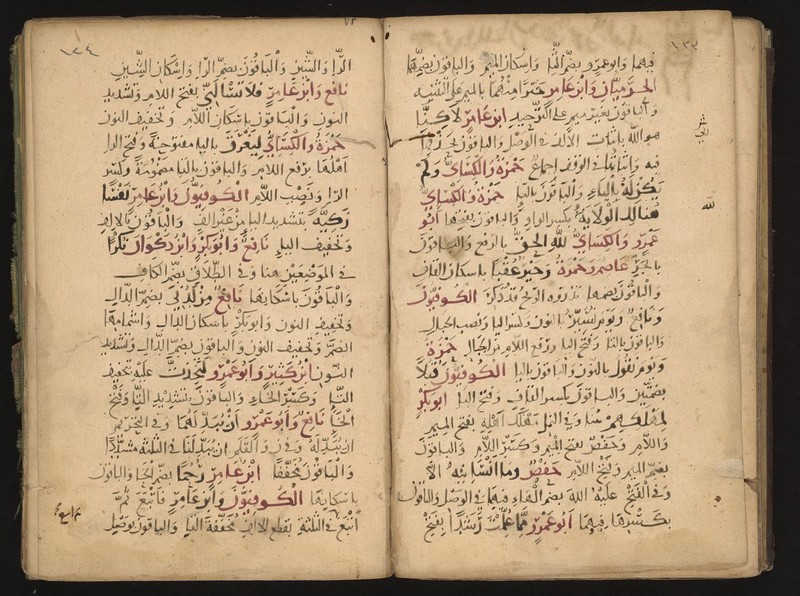 ١٣٣
فيهما وابوعمرو بضم الثا واسكان الميم والباقون بضمهما
الحرميان وابن عامر خيرا منهما بالميم على التثنيه
والباقون بغير ميم على التوحيد ابن عامر لاكنا
هو الله باثبات الالف في الوصل والباقون بحذفها
فيه واثباتها في الوقف اجماع حمزة والكسائي ولم
يكن له بالياء والباقون بالتا حمزة والكسائي
هنالك الولاية بكسر الواو والباقون بفتحها ابو
عمرو والكسائي لله الحق بالرفع والباقون
بالجر عاصم وحمزة وخير عقبا باسكان القاف
والباقون بضمها تذروه الريح قد ذكر الكوفيون
ونافع ويوم نسير بالنون وكسر اليا ونصب الجبال
والباقون بالتا وفتح اليا ورفع اللام من الجبال حمزة
ويوم نقول بالنون والباقون باليا الكوفيون قبلا
بضمتين والباقون بكسر القاف وفتح البا ابوبكر
لمهلكهم هنا وفي النمل مهلك اهله بفتح الميم
واللام وحفص بفتح الميم وكسر اللام والباقون
بضم الميم وفتح اللام حفص وما انسانيه الا
وفي الفتح عليه الله بضم الهاء فيهما في الوصل والباقون
بكسرها فيهما ابوعمرو مما علمت رشدا بفتح
لله
١٣٤
الرا والشين والباقون بضم الرا واسكان الشين
نافع وابن عامر فلا تسالني بفتح اللام وتشديد
النون والباقون باسكان اللام وتخفيف النون
حمزة والكسائي ليغرق باليا مفتوحة وفتح الرا
اهلها برفع اللام والباقون بالتا مضمومة وكسر
الرا ونصب اللام الكوفيون وابن عامر نفسا
زكية بتشديد اليا من غير الف والباقون بالالف
وتخفيف اليا نافع وابوبكر وابن ذكوان نكرا
في الموضعين هنا وفي الطلاق بضم الكاف
والباقون باسكانها نافع من لدني بضم الدال
وتخفيف النون وابوبكر باسكان الدال واشمامها
الضم وتخفيف النون والباقون بضم الدال وتشديد
النون ابن كثير وابو عمرو لتخذت عليه بتخفيف
التا وكسر الخاء والباقون بتشديد التا وفتح
الخا نافع وابوعمرو ان يبدلهما وفي التحريم
ان يبدله وفي ن والقلم ان يبدلنا في الثلثة مشددا
والباقون مخففا ابن عامر رحما بضم الحا والباقون
باسكانها الكوفيون وابن عامر فاتبع ثم
اتبع في الثلثة بقطع الالف مخففة التا والباقون بوصل